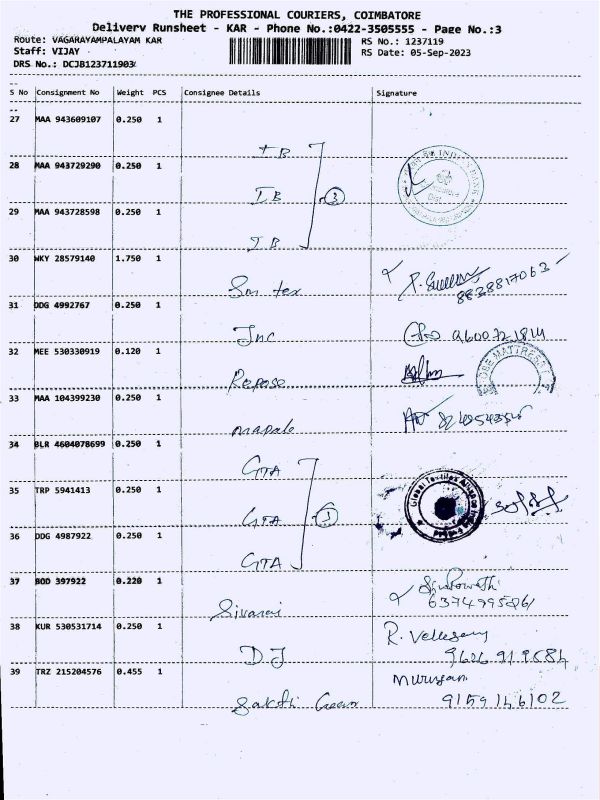 THE PROFESSIONAL COURIERS, COIMBATORE
Delivery Runsheet - KAR - Phone No.:0422-3505555 - Page No.:3
Route: VAGARAYAMPALAYAM KAR RS No.: 1237119
Staff: VIJAY RS Date: 05-Sep-2023
DRS No.: DCJB123711903
S No Consignment No Weight PCS Consignee Details Signature
27 MAA 943609107 0.250 1
IB
28 MAA 943729290 0.250 1
IB 3
29 MAA 943728598 0.250 1
IB
30 WKY 28579140 1.750 1
Sm tex 8838817063
31 DDG 4992767 0.250 1
Inc 9600721814
32 MEE 530330919 0.120 1
Repose MATTRESS
33 MAA 104399230 0.250 1
34 BLR 4604078699 0.250 1
GTA
35 TRP 5941413 0.250 1
GTA 3 Global Textiles Alliance India
36 DDG 4987922 0.250 1
GTA
37 BOD 397922 0.220 1
38 KUR 530531714 0.250 1 R.
DJ
39 TRZ 215204576 0.455 1 Murugan
Sakthi 9159146102